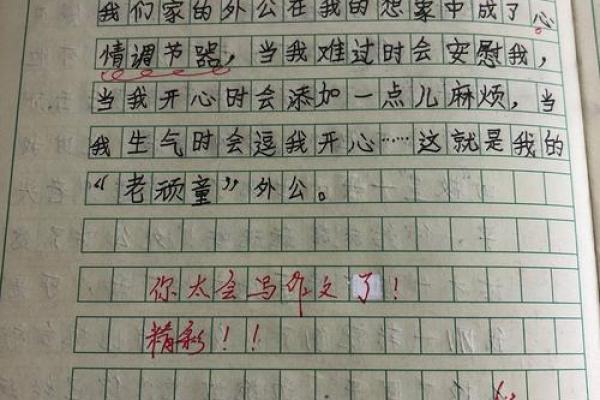 我们家的外公在我的想象中成了心
情调节器，当我难过时会安慰我，
当我开心时会添加一点儿麻烦，当
我生气时会逗我开心……这就是我的
“老顽童”外公。
你太会写作文了！
精彩！！